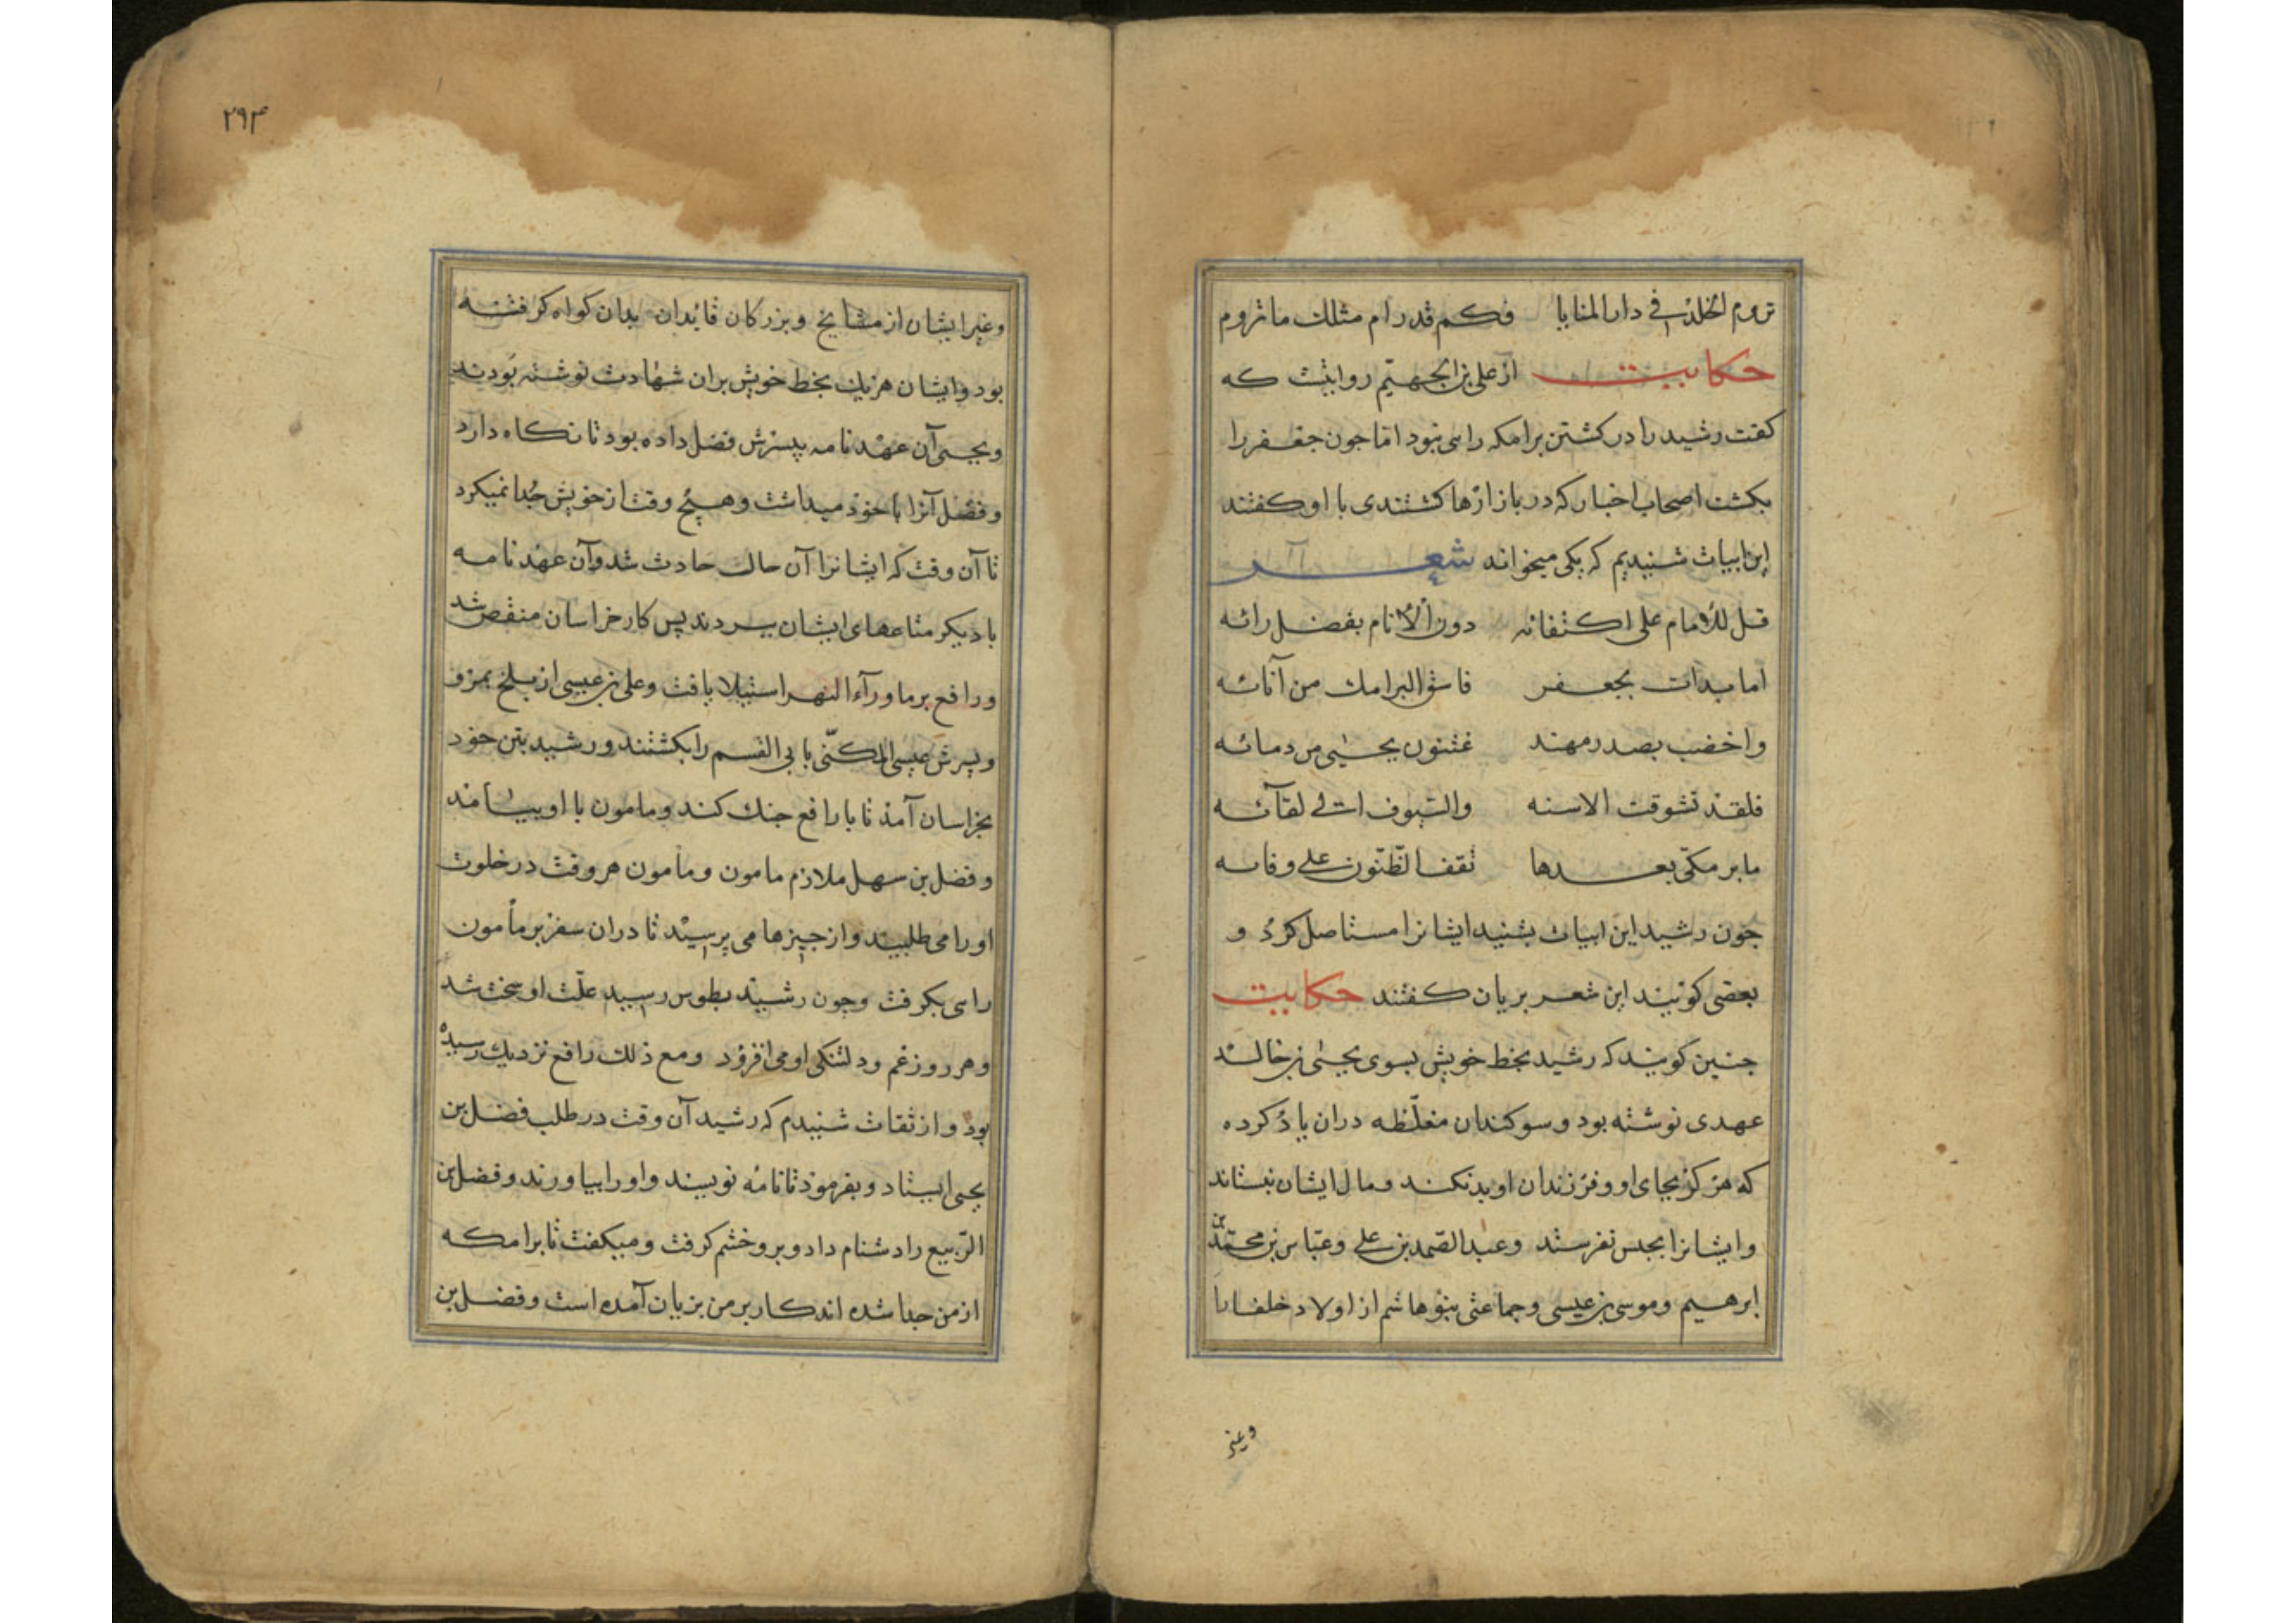 تروم الخلد في دار المنايا فكم قد رام مثلك ما تروم
حكايت از على بن الجهم روايتست كه
كفت رشيد را در كشتن برامكه راى نبود اما جون جعفر را
بكشت اصحاب اخبار كه در بازارها كشتندى با او كفتند
اين ابيات شنيديم كه يكى ميخواند شعر
قل للامام على اكتفائه دون الانام بفضل رائه
اما بدات بجعفر فاسق البرامك من انائه
واخضب بصدر مهند عثنون يحيى من دمائه
فلقد تشوقت الاسنه والسيوف الى لقائه
ما برمكى بعدها تقف الظنون على وفائه
جون رشيد اين ابيات بشنيد ايشانرا مستاصل كرد و
بعضى كويند اين شعر بريان كفتند حكايت
جنين كويند كه رشيد بخط خويش بسوى يحيى بن خالد
عهدى نوشته بود و سوكندان مغلّظه دران ياد كرده
كه هركز بجاى او و فرزندان او بد نكند و مال ايشان نستاند
وايشانرا بحبس نفرستد وعبد الصمد بن على وعبّاس بن محمّد بن
ابرهيم وموسى بن عيسى وجماعتى بنو هاشم از اولاد خلفا را
وغير
۲۹۴
وغير ايشان از مشايخ وبزركان قايدان بدان كواه كرفته
بود وايشان هريك بخط خويش بران شهادت نوشته بودند
ويحيى آن عهد نامه پسرش فضل داده بود تا نكاه دارد
و فضل آنرا با خود ميداشت وهيچ وقت از خويش جدا نميكرد
تا آن وقت كه ايشانرا آن حالت حادث شد وآن عهد نامه
با ديكر متاعهاى ايشان ببردند پس كار خراسان منقض شد
ورافع بر ماورآء النهر استيلا يافت وعلى بن عيسى از بلخ بمرو
وپسرش عيسى المكنّى بابى القسم را بكشتند ورشيد بتن خود
بخراسان آمد تا با رافع جنك كند ومامون با او بيامد
وفضل بن سهل ملازم مامون ومامون هر وقت در خلوت
او را مى طلبيد واز چيزها مى پرسيد تا دران سفر بر مأمون
راى بكرفت وجون رشيد بطوس رسيد علّت او سخت شد
وهر روز غم ودلتنكى او مى افزود ومع ذلك رافع نزديك رسيده
بود واز ثقات شنيدم كه رشيد آن وقت در طلب فضل بن
يحيى ايستاد وبفرمود تا نامه نويسند واو را بياورند وفضل بن
الرّبيع را دشنام داد وبرو خشم كرفت وميكفت تا برامكه
از من جدا شده اند كار بر من بزيان آمده است وفضل بن